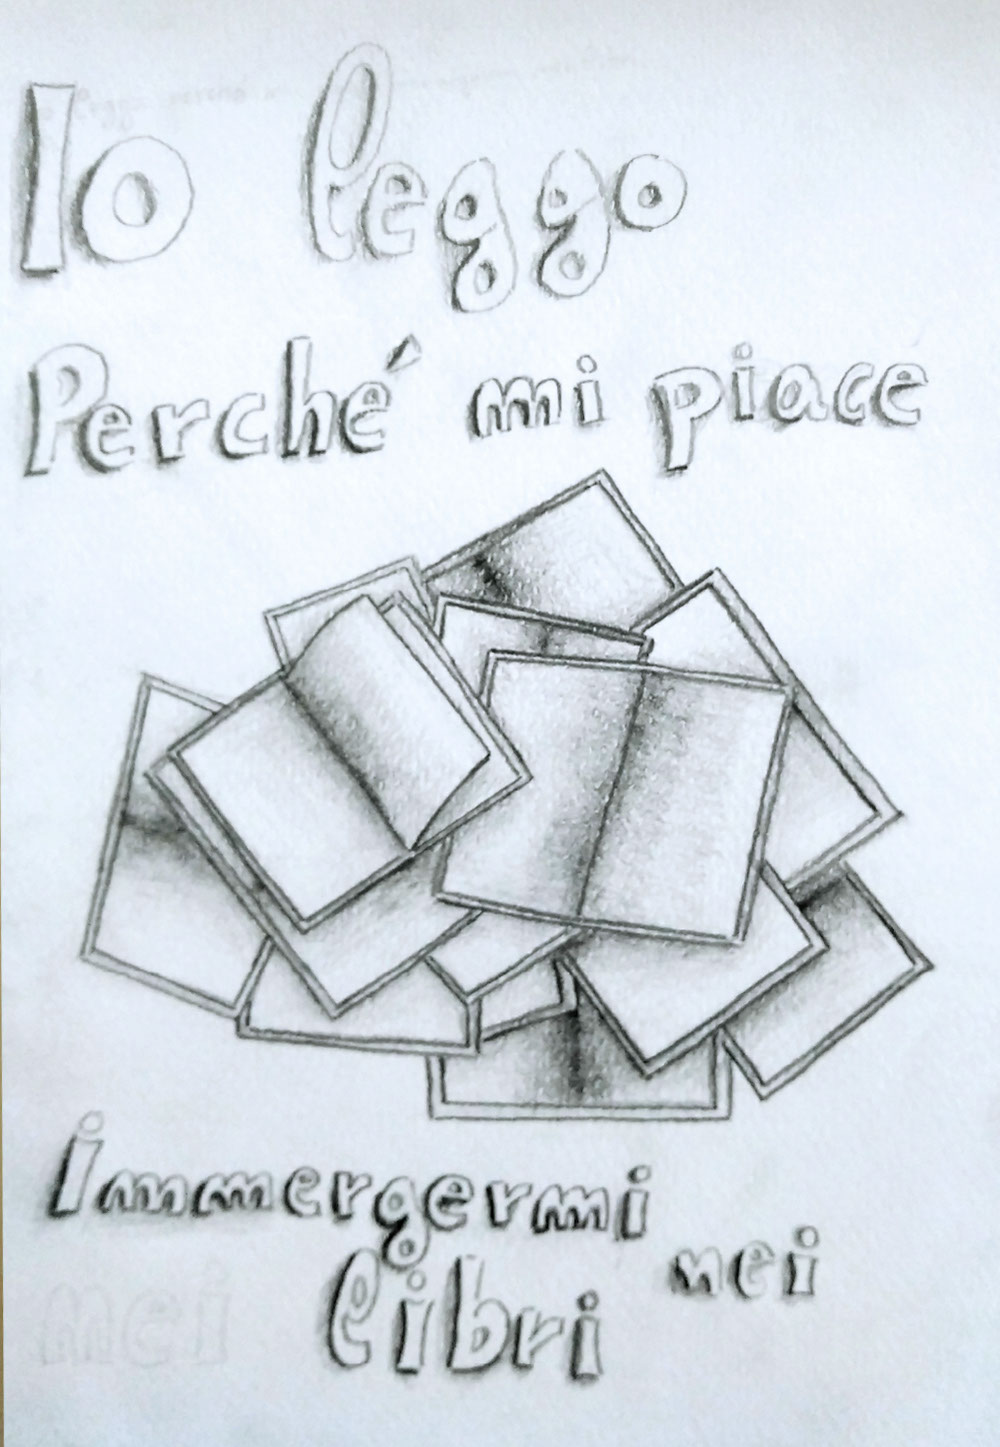 Io leggo
Perché mi piace
Immergermi nei
libri
nei